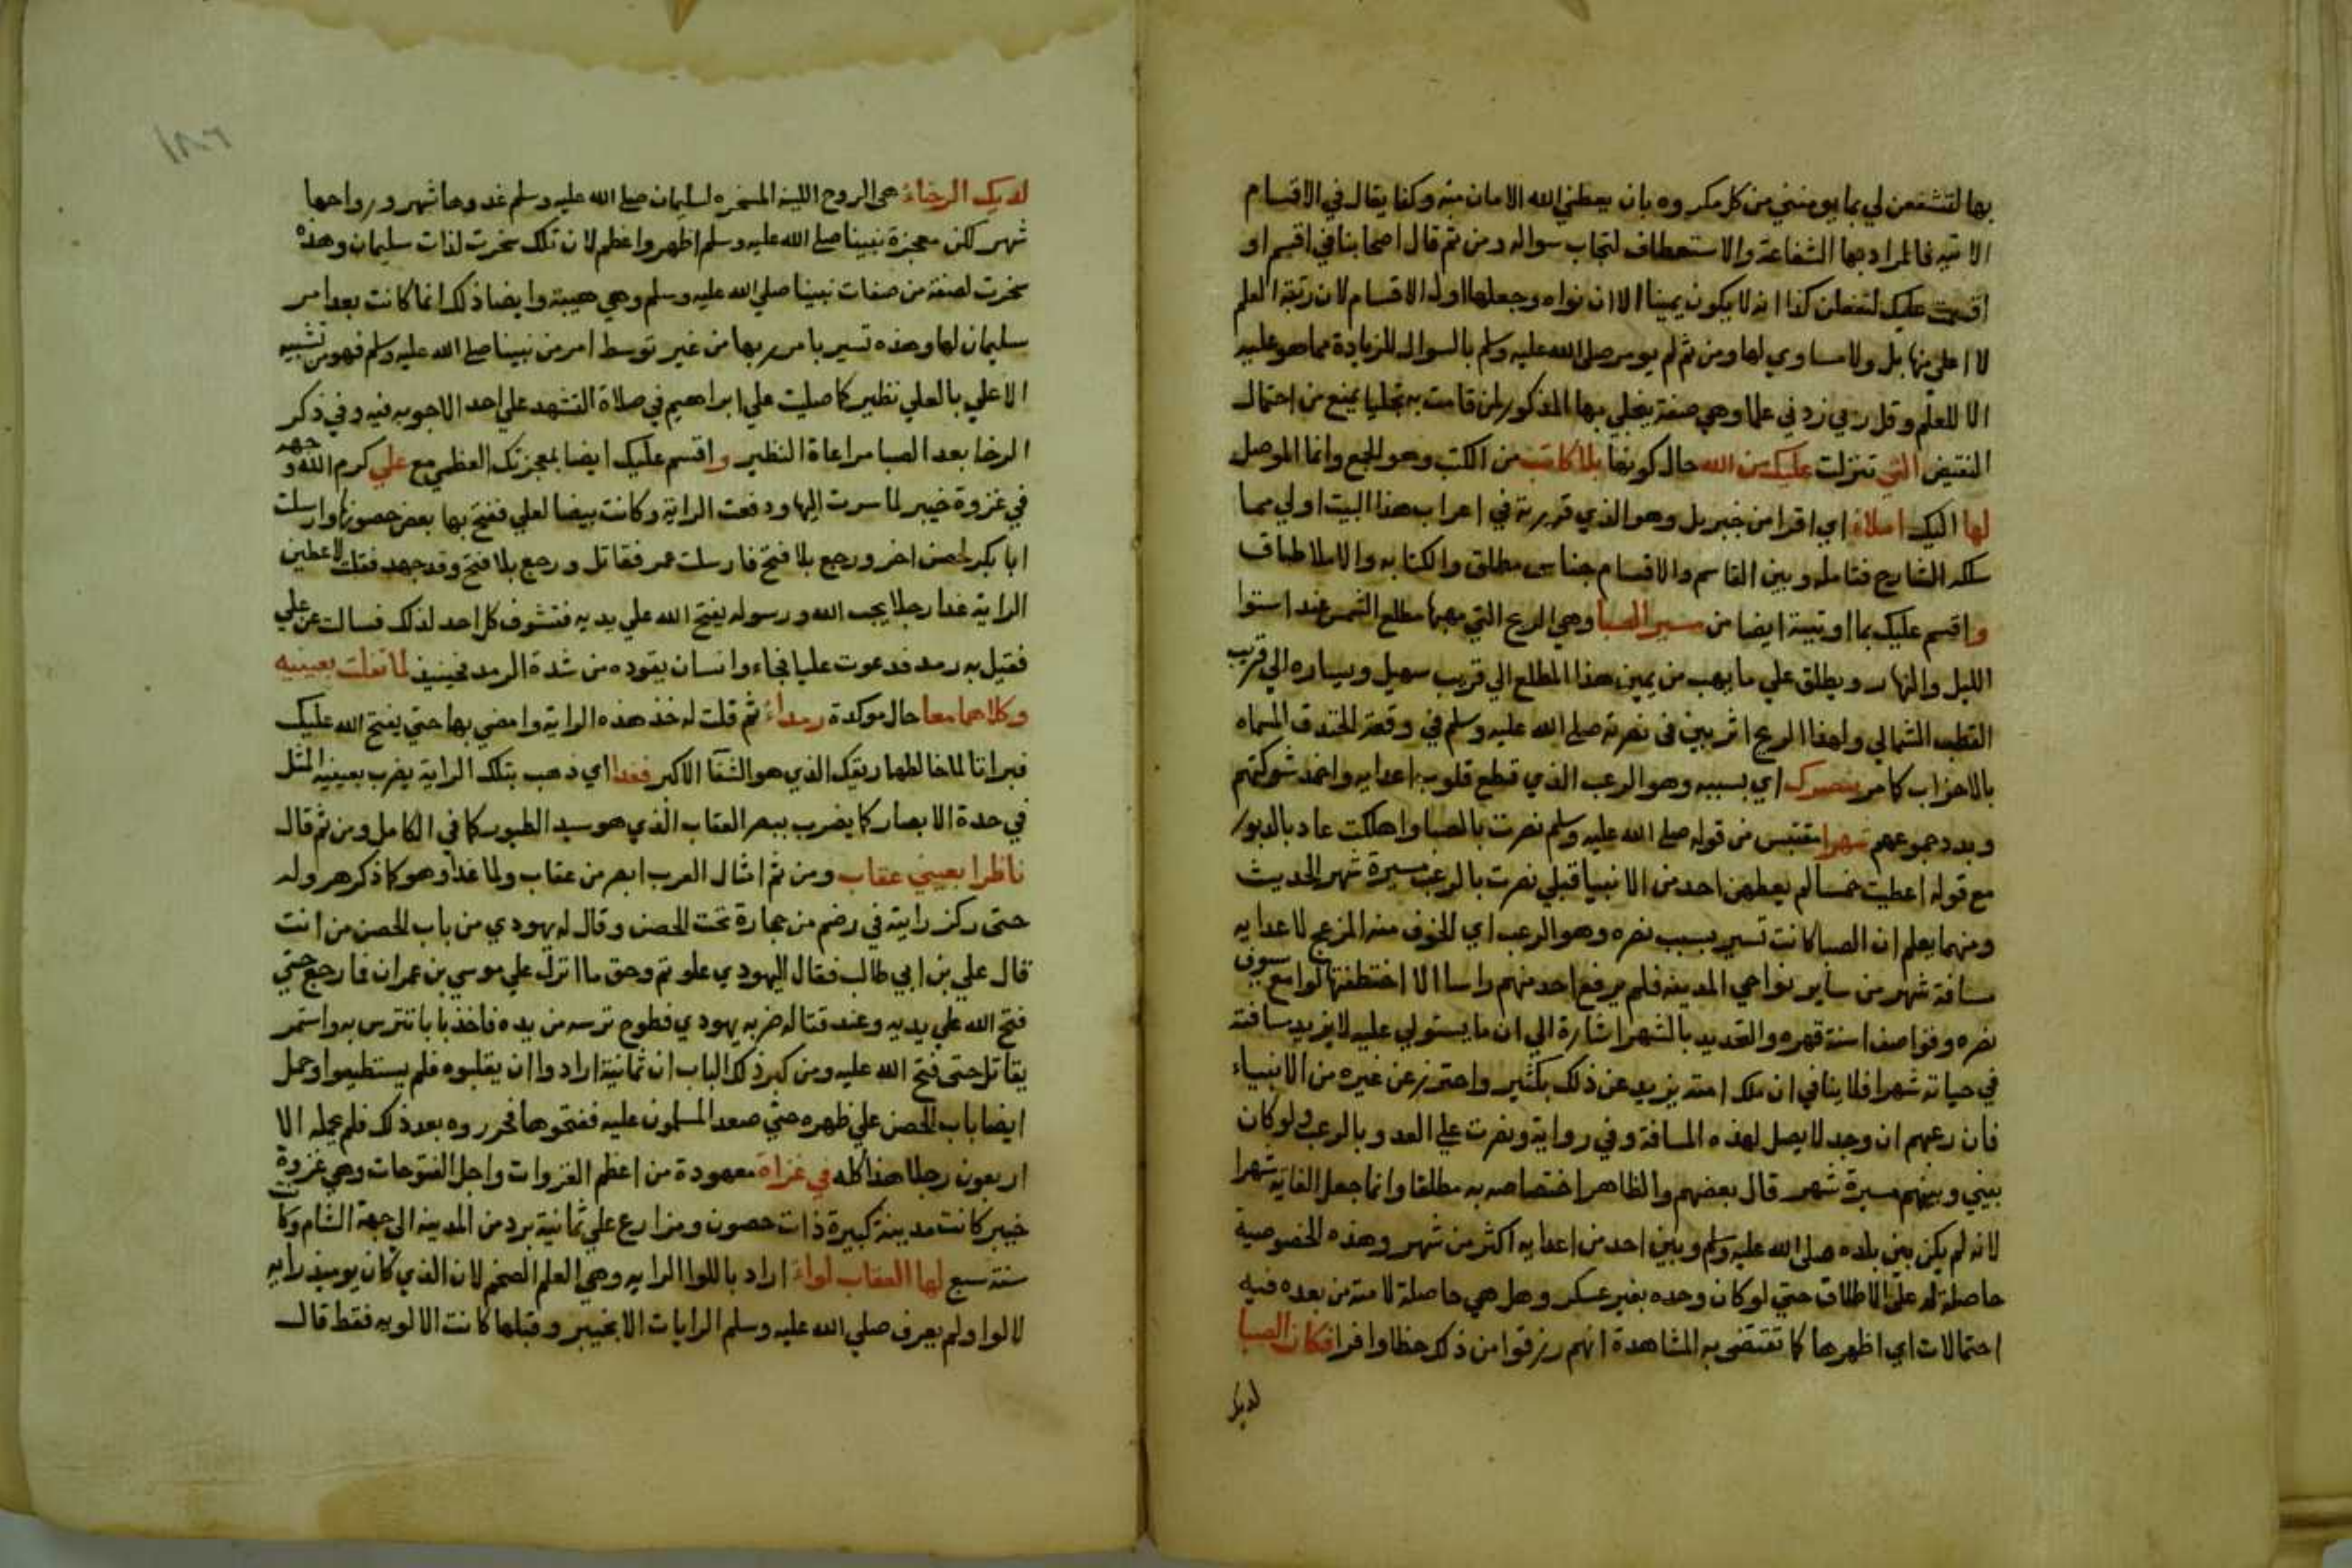 بها لتشفعن لي بما يومنني من كل مكروه بان يعطني الله الامان منه وكذا يقال في الاقسام
الاتيه فالمراد بها الشفاعة والاستعطاف لتجاب سواله ومن ثم قال اصحابنا في اقسم او
اقسمت عليك لتفعلن كذا انه لا يكون يمينا الا ان نواه وجعلها اول الاقسام لان رتبة العلم
لا اعلي منها بل ولا مساوي لها ومن ثم لم يومر صلي الله عليه وسلم بالسوال للزيادة مما هو عليه
الا للعلم وقل ربي زدني علما وهي صفة يتجلي بها المذكور لمن قامت به تجليا يمنع من احتمال
النقيض التي تنزلت عليك من الله حال كونها بلا كاتب من الكتب وهو الجمع وانما الموصل
لها اليك املاء اي اقرا من جبريل وهو الذي قررته في اعراب هذا البيت اولي مما
سلكه الشارح فتامله وبين القاسم والاقسام جناس مطلق والكتابه والاملا طباق
واقسم عليك بما اوتيته ايضا من سير الصبا وهي الريح التي مهبها مطلع الشمس عند استوا
الليل والنهار ويطلق علي ما يهب من يمين هذا المطلع الي قريب سهيل ويساره الي قريب
القطب الشمالي ولهذا الريح اثر بين في نصرته صلي الله عليه وسلم في وقعة الخندق المسماه
بالاحزاب كما مر بنصرك اي بسببه وهو الرعب الذي قطع قلوب اعدايه واخمد شوكتهم
وبدد جموعهم شهرا مقتبس من قوله صلي الله عليه وسلم نصرت بالصبا واهلكت عاد بالدبور
مع قوله اعطيت خمسا لم يعطهن احد من الانبيا قبلي نصرت بالرعب مسيرة شهر الحديث
ومنهما يعلم ان الصبا كانت تسير بسبب نصره وهو الرعب اي الخوف منه المزعج لاعدايه
مسافة شهر من ساير نواحي المدينه فلم يرفع احد منهم راسا الا اختطفتها لوامع سيوف
نصره وفواصف اسنة قهره والتحديد بالشهر اشارة الي ان ما يستولي عليه لا يزيد مسافته
في حياته شهرا فلا ينافي ان ملك امته يزيد عن ذلك بكثير واحترز عن غيره من الانبياء
فان رعبهم ان وجد لا يصل لهذه المسافة وفي رواية ونصرت علي العدو بالرعب ولو كان
بيني وبينهم مسيرة شهر قال بعضهم والظاهر اختصاصه به مطلقا وانما جعل الغاية شهرا
لانه لم يكن بين بلده صلي الله عليه وسلم وبين احد من اعدايه اكثر من شهر وهذه الخصوصية
حاصلة له علي الاطلاق حتي لو كان وحده بغير عسكر وهل هي حاصلة لامته من بعده فيه
احتمالات اي اظهرها كما تقتضي به المشاهدة انهم رزقوا من ذلك حظا وافرا فكان الصبا
لديك
١٨٦
لديك الرخاء هي الروح اللينة المسخره لسليمان صلي الله عليه وسلم غدوها شهر ورواحها
شهر لكن معجزة نبينا صلي الله عليه وسلم اظهر واعظم لان تلك سخرت لذات سليمان وهذه
سخرت لصفة من صفات نبينا صلي الله عليه وسلم وهي هيبته وايضا ذلك انما كانت بعد امر
سليمان لها وهذه تسير بامر ربها من غير توسط امر من نبينا صلي الله عليه وسلم فهو من تشبيه
الاعلي بالعلي نظير كما صليت علي ابراهيم في صلاة التشهد علي احد الاجوبه فيه وفي ذكر
الرخا بعد الصبا مراعاة النظير واقسم عليك ايضا بمعجزتك العظمي مع علي كرم الله وجهه
في غزوة خيبر لما سرت اليها ودفعت الراية وكانت بيضا لعلي ففتح بها بعض حصونها وارسلت
ابا بكر لحصن اخر ورجع بلا فتح فارسلت عمر فقاتل ورجع بلا فتح وقد جهد فقلت لاعطين
الراية غدا رجلا يحب الله ورسوله يفتح الله علي يديه فتشوف كل احد لذلك فسالت عن علي
فقيل به رمد فدعوت عليا فجاء وانسان يقوده من شدة الرمد فحينيذ لما تفلت بعينيه
وكلاهما معا حال موكدة رمداء ثم قلت له خذ هذه الراية وامضي بها حتي يفتح الله عليك
فبراتا لما خالطها ريقك الذي هو الشفا الاكبر فغدا اي ذهب بتلك الراية يضرب بعينيه المثل
في حدة الابصار كما يضرب ببصر العقاب الذي هو سيد الطيور كما في الكامل ومن ثم قال
ناظرا بعيني عقاب ومن ثم امثال العرب ابصر من عقاب ولما غدا وهو كما ذكر هرول
حتي ركز رايته في رضم من حجارة تحت الحصن وقال له يهودي من باب الحصن من انت
قال علي بن ابي طالب فقال اليهودي علوتم وحق ما انزل علي موسي بن عمران فما رجع حتي
فتح الله علي يديه وعند قتاله ضربه يهودي فطوح ترسه من يده فاخذ بابا تترس به واستمر
يقاتل حتي فتح الله عليه ومن كبر ذلك الباب ان ثمانية ارادوا ان يقلبوه فلم يستطيعوا وحمل
ايضا باب الحصن علي ظهره حتي صعد المسلمون عليه ففتحوها فحرروه بعد ذلك فلم يحمله الا
اربعون رجلا هذا كله في غزاة معهودة من اعظم الغزوات واجل الفتوحات وهي غزوة
خيبر كانت مدينة كبيرة ذات حصون ومزارع علي ثمانية برد من المدينه الي جهة الشام وكانت
سنة سبع لها العقاب لواء اراد باللوا الرايه وهي العلم الضخم لان الذي كان يوميذ رايه
لا لوا ولم يعرف صلي الله عليه وسلم الرايات الا بخيبر وقبلها كانت الالويه فقط قال